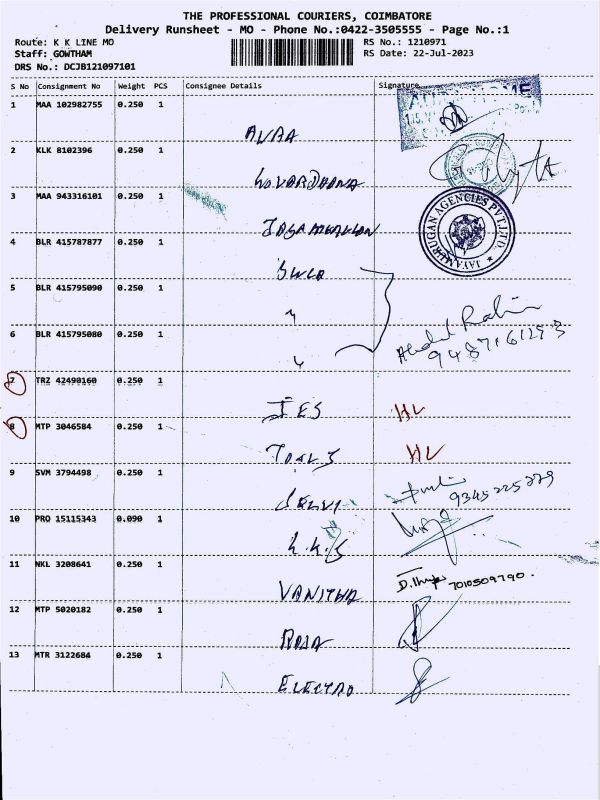 THE PROFESSIONAL COURIERS, COIMBATORE
Delivery Runsheet - MO - Phone No.:0422-3505555 - Page No.:1
Route: K K LINE MO
RS No.: 1210971
Staff: GOWTHAM
RS Date: 22-Jul-2023
DRS No.: DCJB121097101
S No Consignment No Weight PCS Consignee Details Signature
1 MAA 102982755 0.250 1
AVAA
2 KLK 8102396 0.250 1
GOVARDHANA
3 MAA 943316101 0.250 1
JAYAMURUGAN AGENCIES PVT.LTD.
4 BLR 415787877 0.250 1
5 BLR 415795090 0.250 1
6 BLR 415795080 0.250 1
7 TRZ 42490160 0.250 1
IES HL
8 MTP 3046584 0.250 1
HL
9 SVM 3794498 0.250 1
SELVI 9345225279
10 PRO 15115343 0.090 1
K.K.S
11 NKL 3208641 0.250 1
VANITHA 7010509790.
12 MTP 5020182 0.250 1
ROJA
13 MTR 3122684 0.250 1
ELECTRO